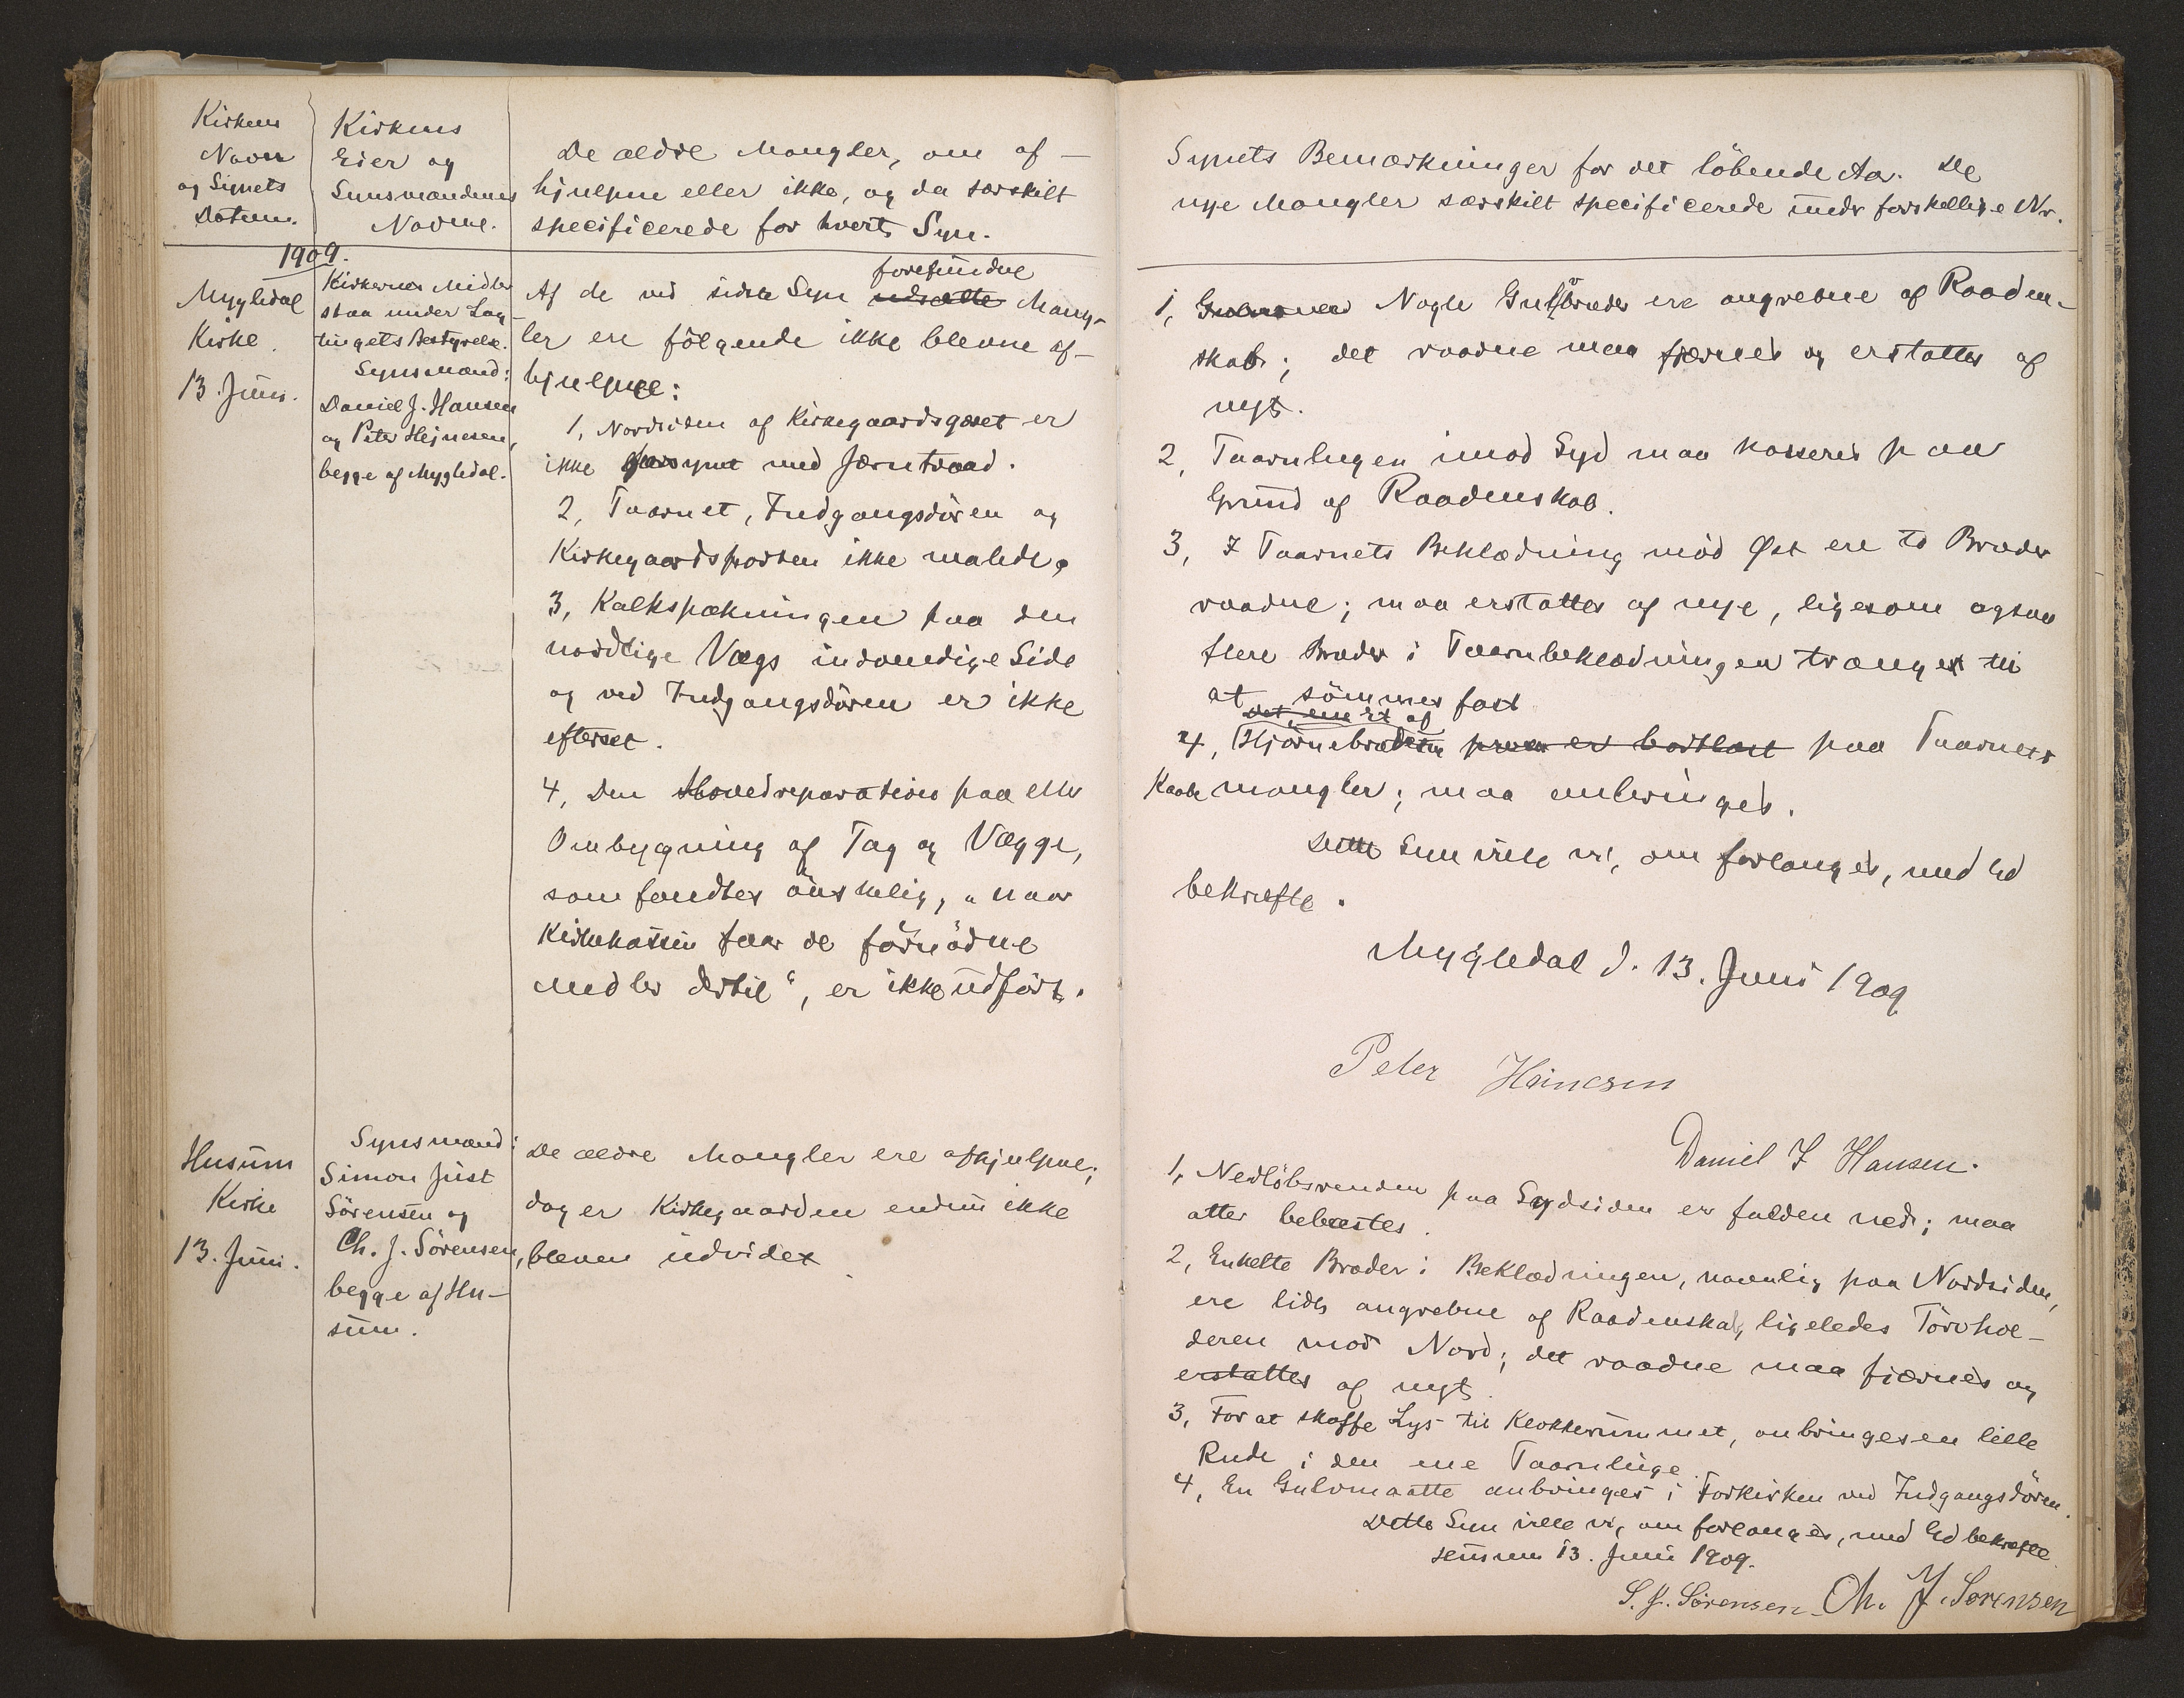 Kirkens
Navn
og Synets
Datum.
Kirkens
Eier og
Synsmændenes
Navne.
De ældre Mangler, om af-
hjulpne eller ikke, og da særskilt
specificerede for hvert Syn.
1909.
Mygledal
Kirke.
13. Juni.
Kirkernes Midler
staa under Lag-
tingets Bestyrelse.
Synsmænd:
Daniel J. Hansen
og Peter Hejnesen,
begge af Mygledal.
forefundne
Af de ved sidste Syn udsatte Mang-
ler ere følgende ikke blevne af-
hjulpne:
1, Nordsiden af Kirkegaardsgæret er
ikke forsynet med Jærntraad.
2, Taarnet, Indgangsdøren og
Kirkegaardsporten ikke malede,
3, Kalkspækningen paa den
nordlige Vægs indvendige Side
og ved Indgangsdøren er ikke
efterset.
4, Den Hovedreparation paa eller
Ombygning af Tag og Vægge,
som fandtes ønskelig, „naar
Kirkekassen faar de fornødne
Midler dertil“, er ikke udført.
Husum
Kirke
13. Juni.
Synsmænd:
Simon Just
Sörensen og
Ch. J. Sörensen,
begge af Hu-
sum.
De ældre Mangler ere afhjulpne;
dog er Kirkegaarden endnu ikke
bleven udvidet.
Synets Bemærkninger for det løbende Aar. De
nye Mangler særskilt specificerede under forskellige Nr.
1, Nogle Gulvbræder ere angrebne af Raaden-
skab; det raadne maa fjærnes og erstattes af
nyt.
2, Taarnlugen imod Syd maa kasseres paa
Grund af Raadenskab.
3, I Taarnets Beklædning mod Øst ere to Bræder
raadne; maa erstattes af nye, ligesom ogsaa
flere Bræder i Taarnbeklædningen trænger til
at sømmes fast
Det ene et af
4, Hjørnebræderne er bortblæst paa Taarnets
Kaabe mangler; maa anbringes.
Dette Syn ville vi, om forlanges, med Ed
bekræfte.
Mygledal d. 13. Juni 1909
Peter Heinesen
Daniel J Hansen.
1, Nedløbsrenden paa Sydsiden er falden ned; maa
atter befæstes.
2, Enkelte Bræder i Beklædningen, navnlig paa Nordsiden,
ere lidt angrebne af Raadenskab, ligeledes Tørvhol-
deren mod Nord; det raadne maa fjærnes og
erstattes af nyt.
3, For at skaffe Lys til Klokkerummet, anbringes en lille
Rude i den ene Taarnluge.
4, En Gulvmaatte anbringes i Forkirken ved Indgangsdøren.
Dette Syn ville vi, om forlanges, med Ed bekræfte.
Husum 13. Juni 1909.
S. J. Sörensen Ch. J. Sørensen